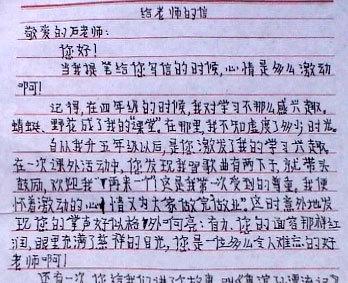 给老师的信
敬爱的石老师：
您好！
当我提笔给您写信的时候，心情是多么激动
啊！
记得，在四年级的时候，我对学习不那么感兴趣。
蜻蜓、野花成了我的"课堂"。在那里，我不知虚度了多少时光。
自从我升五年级以后，是您激发了我的学习兴趣。
在一次课外活动中，您发现我唱歌曲有两下子，就带头
鼓励，欢迎我"再来一个"这是我第一次受到的尊重，我便
怀着激动的心情又为大家做完做业"这时意外地发
现您的掌声好似格外响亮：有力，你的面容那样红
润，眼里充满了慈祥的目光，您是一位多么令人难忘的好
老师啊！
还有一次，您给我们讲了故事